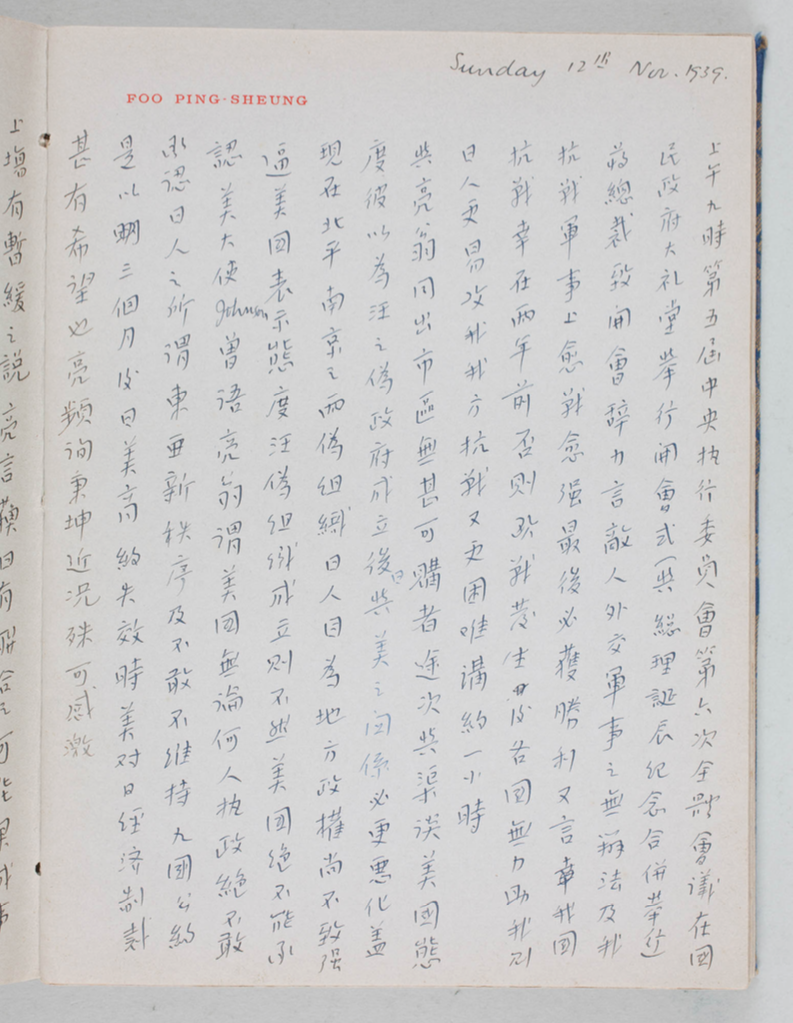 Sunday 12th Nov. 1939.
FOO PING-SHEUNG
上午九時第五届中央执行委員會第六次全體會議在國
民政府大礼堂举行開會式(與総理誕辰纪念合併举行)
蒋總裁致開會辞力言敵人外交軍事之無辦法及我
抗戦軍事上愈戦愈强最後必獲勝利又言幸我國
抗戦幸在两年前否則欧戦發生以後各國無力助我則
日人更易攻我我方抗戦又更困难講約一小時
與亮翁同出市區無甚可購者途次與渠談美國態
度彼以為汪之偽政府成立後日與美之関係必更悪化盖
現在北平南京之两偽组織日人目為地方政權尚不致强
逼美國表示態度汪偽组織成立則不然美國绝不能承
認美大使Johnson曾语亮翁谓美國無論何人执政絶不敢
承認日人之所谓東亜新秩序及不敢不维持九國公約
是以明三個月後日美商约失效時美对日经济制裁
甚有希望也亮頻询秉坤近况殊可感激
上塲有暫緩之説亮言